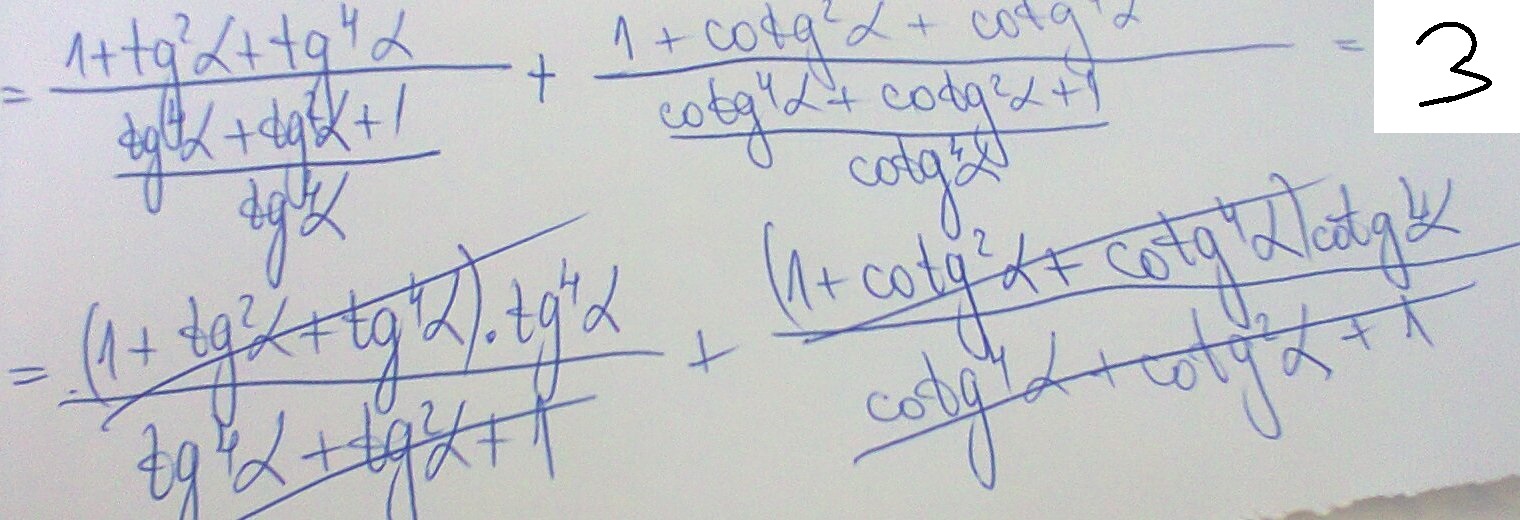 = (1+tg²α+tg⁴α)/((tg⁴α+tg²α+1)/tg⁴α) + (1+cotg²α+cotg⁴α)/((cotg⁴α+cotg²α+1)/cotg⁴α) = 3
= (1+tg²α+tg⁴α)·tg⁴α/(tg⁴α+tg²α+1) + (1+cotg²α+cotg⁴α)cotg⁴α/(cotg⁴α+cotg²α+1)